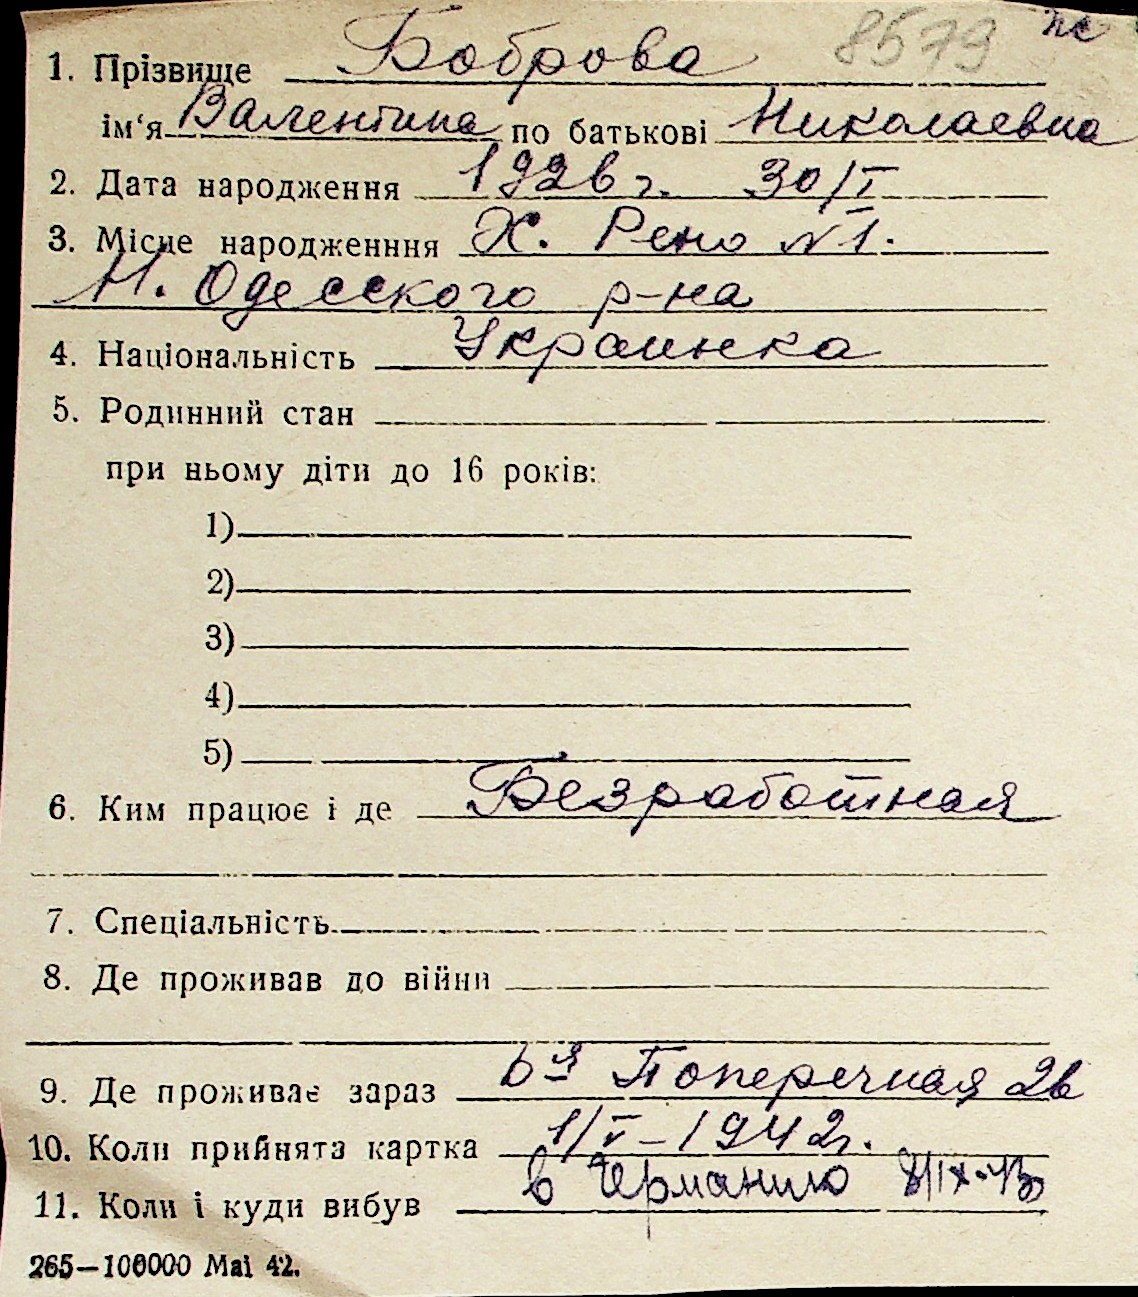 8579 пс
1. Прізвище Боброва
ім‘я Валентина по батькові Николаевна
2. Дата народження 1926 г. 30/I
3. Місце народженння Х. Рено №1.
Н. Одесского р-на
4. Національність Украинка
5. Родинний стан
при ньому діти до 16 років:
1)
2)
3)
4)
5)
6. Ким працює і де Безработная
7. Спеціальність
8. Де проживав до війни
9. Де проживає зараз 6я Поперечная 26
10. Коли прийнята картка 1/V-1942г.
11. Коли і куди вибув в Германию /IX-43
265—100000 Маі 42.